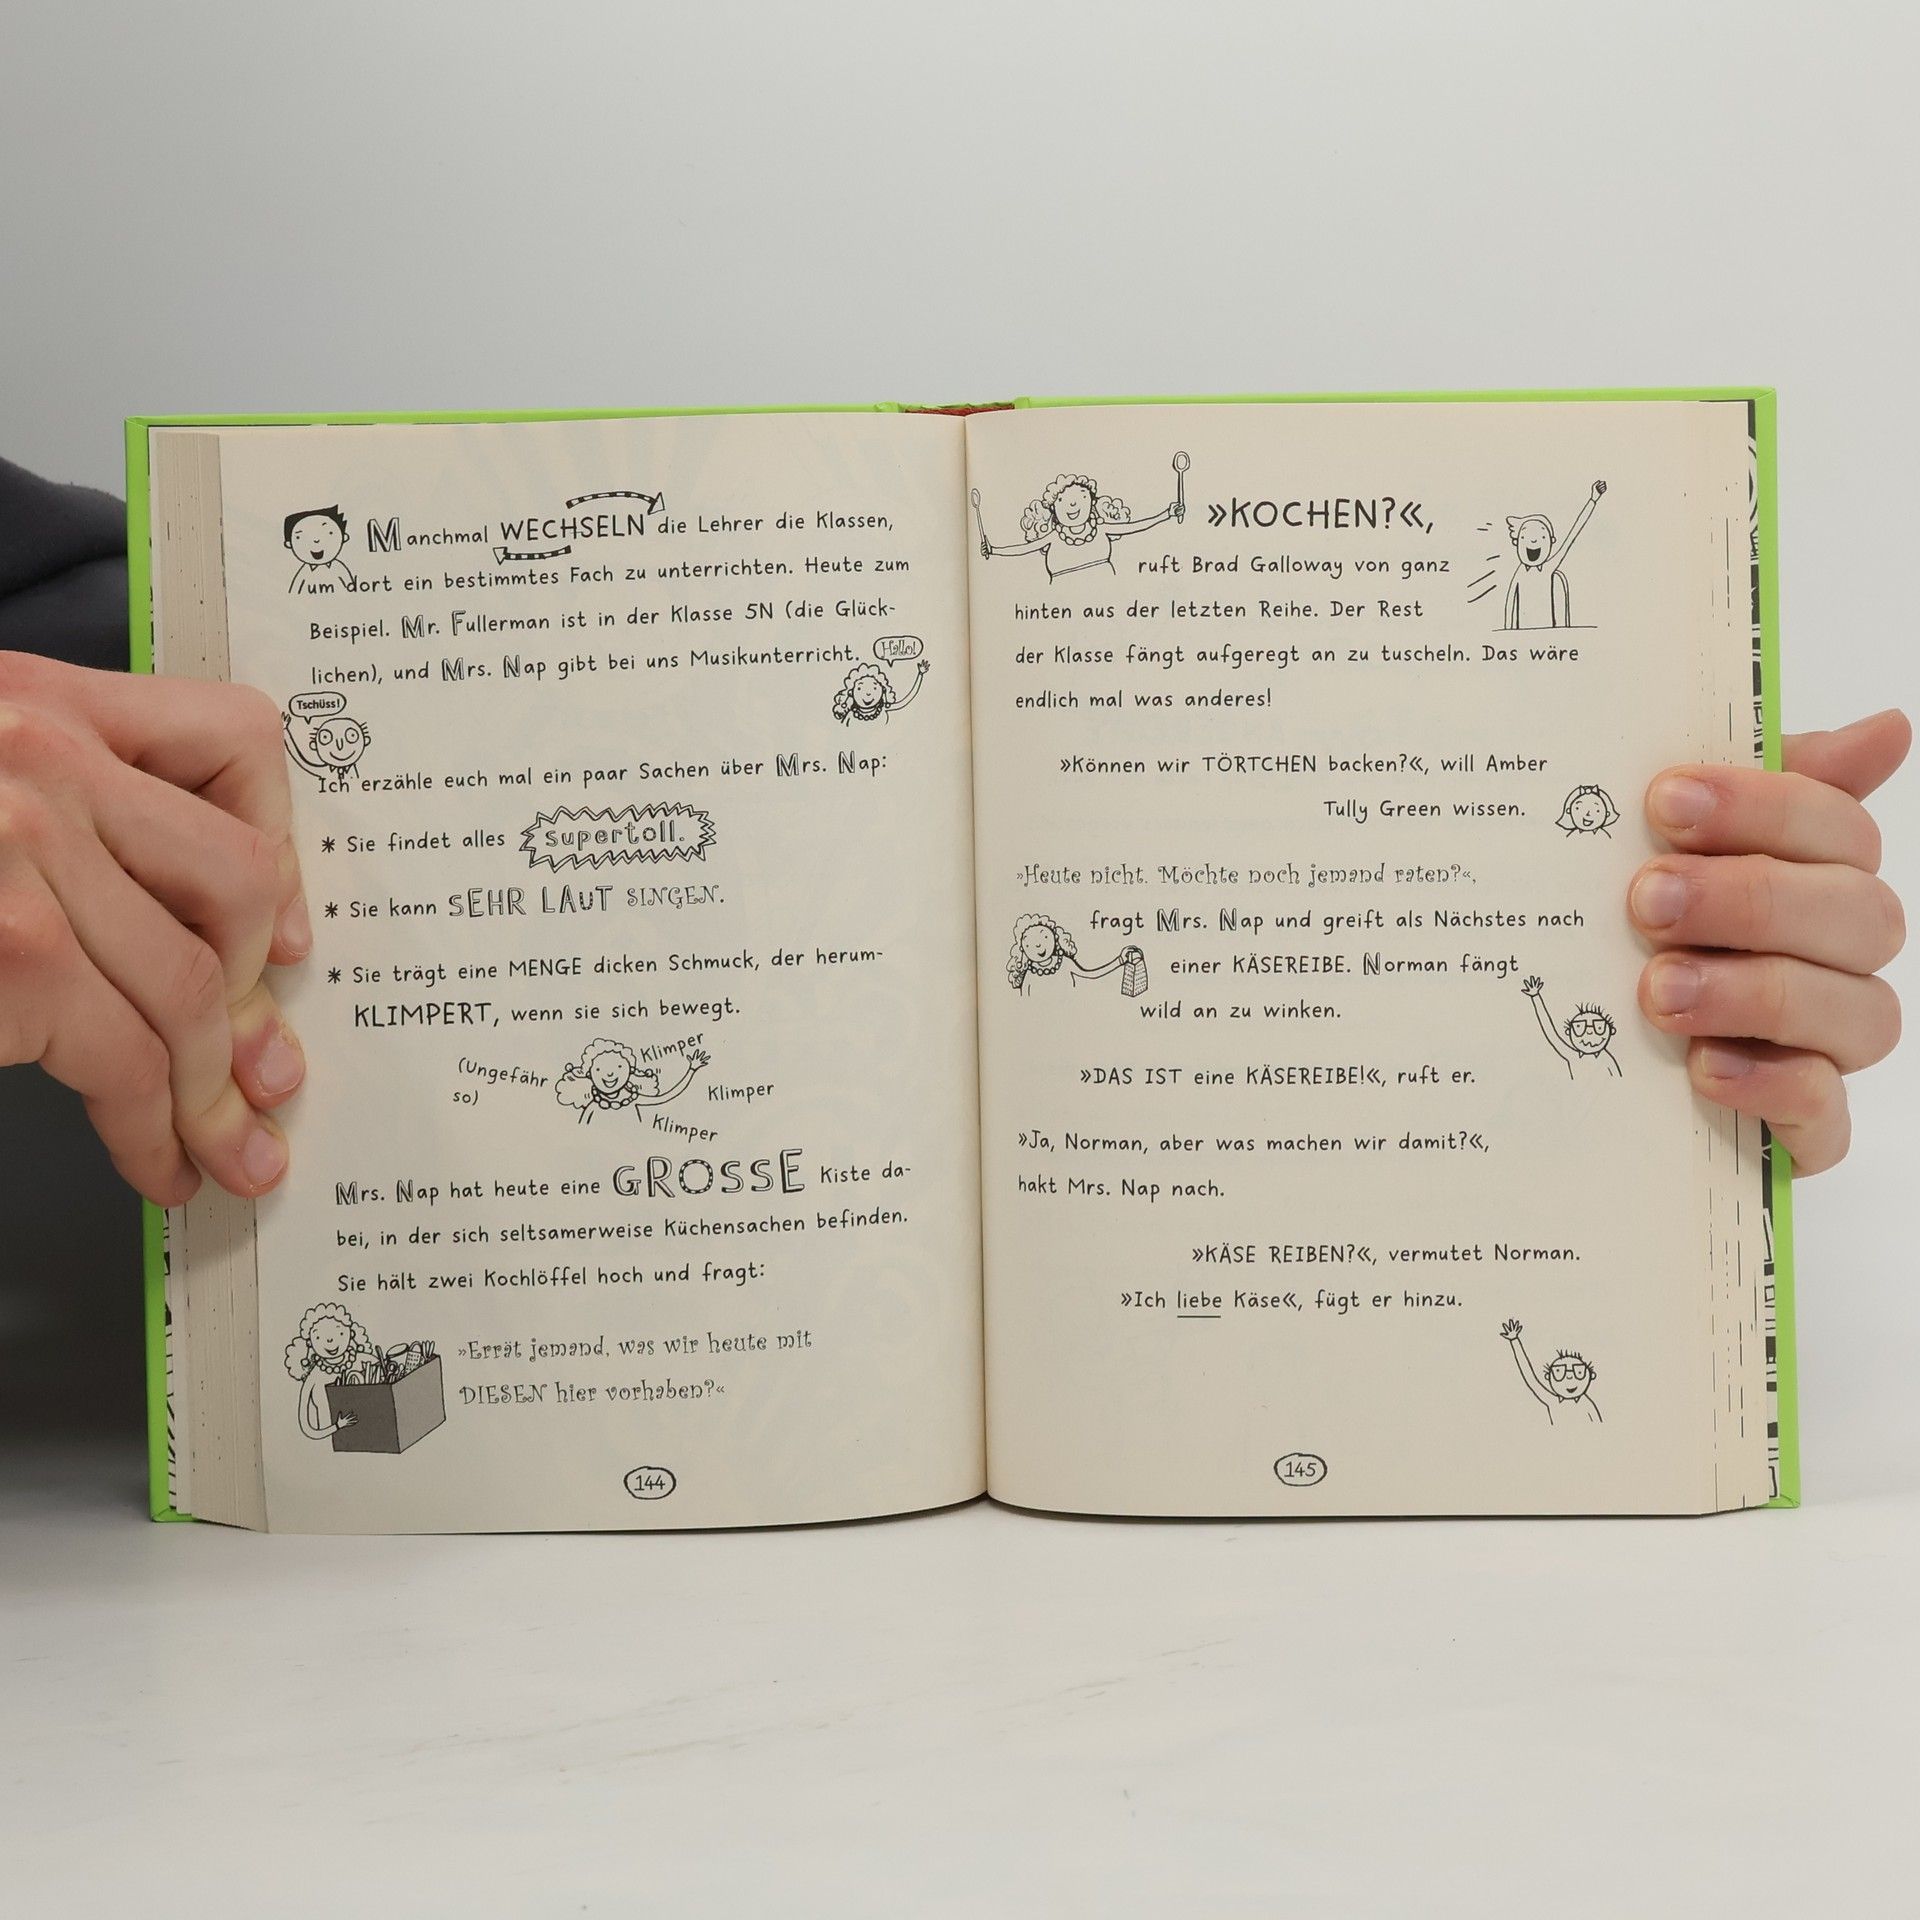 Manchmal WECHSELN die Lehrer die Klassen,
um dort ein bestimmtes Fach zu unterrichten. Heute zum
Beispiel. Mr. Fullerman ist in der Klasse 5N (die Glück-
lichen), und Mrs. Nap gibt bei uns Musikunterricht.
Hallo!
Tschüss!
Ich erzähle euch mal ein paar Sachen über Mrs. Nap:
* Sie findet alles supertoll.
* Sie kann SEHR LAUT SINGEN.
* Sie trägt eine MENGE dicken Schmuck, der herum-
KLIMPERT, wenn sie sich bewegt.
(Ungefähr
so)
Klimper
Klimper
Klimper
Mrs. Nap hat heute eine GROSSE Kiste da-
bei, in der sich seltsamerweise Küchensachen befinden.
Sie hält zwei Kochlöffel hoch und fragt:
»Errät jemand, was wir heute mit
DIESEN hier vorhaben?«
144
»KOCHEN?«,
ruft Brad Galloway von ganz
hinten aus der letzten Reihe. Der Rest
der Klasse fängt aufgeregt an zu tuscheln. Das wäre
endlich mal was anderes!
»Können wir TÖRTCHEN backen?«, will Amber
Tully Green wissen.
»Heute nicht. Möchte noch jemand raten?«,
fragt Mrs. Nap und greift als Nächstes nach
einer KÄSEREIBE. Norman fängt
wild an zu winken.
»DAS IST eine KÄSEREIBE!«, ruft er.
»Ja, Norman, aber was machen wir damit?«,
hakt Mrs. Nap nach.
»KÄSE REIBEN?«, vermutet Norman.
»Ich liebe Käse«, fügt er hinzu.
145